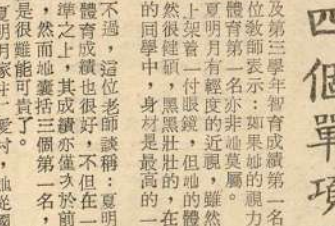 四個單項
及第三學年智育成績第一名
位教師表示：如果她的視力
體育第一名亦非她莫屬。
夏明月有輕度的近視，雖然
上架着一付眼鏡，但她的體
然很健碩，黑黑壯壯的，在
的同學中，身材是最高的一
不過，這位老師談稱：夏明
體育成績也很好，不但在一
準之上，其成績亦僅次於前
，然而她囊括三個第一名，
是很難能可貴了。
夏明月家住一愛村，她從國